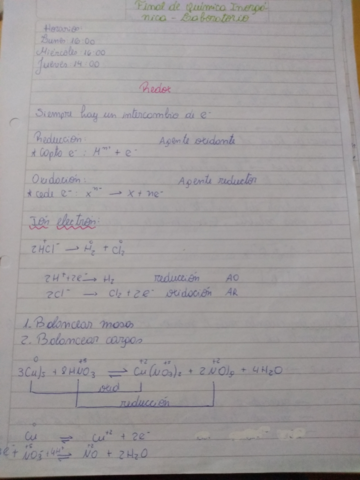 Final de Química Inorgá-
nica - Laboratorio
Horario:
Lunes 16:00
Miércoles 16:00
Jueves 14:00
Redox
Siempre hay un intercambio de e⁻
Reducción: Agente oxidante
* Capta e⁻: + e⁻
Oxidación: Agente reductor
* cede e⁻: → X + ne⁻
Ión electrón:
2HCl → H₂ + Cl₂
2H⁺ + 2e⁻ → H₂ reducción AO
2Cl⁻ → Cl₂ + 2e⁻ oxidación AR
1. Balancear masas
2. Balancear cargas
0 +5 +2 +2
+ 8HNO₃ ⇌ Cu(NO₃)₂ + + 4H₂O
oxid
reducción
Cu ⇌ Cu⁺² + 2e⁻
⇌ NO + 2H₂O